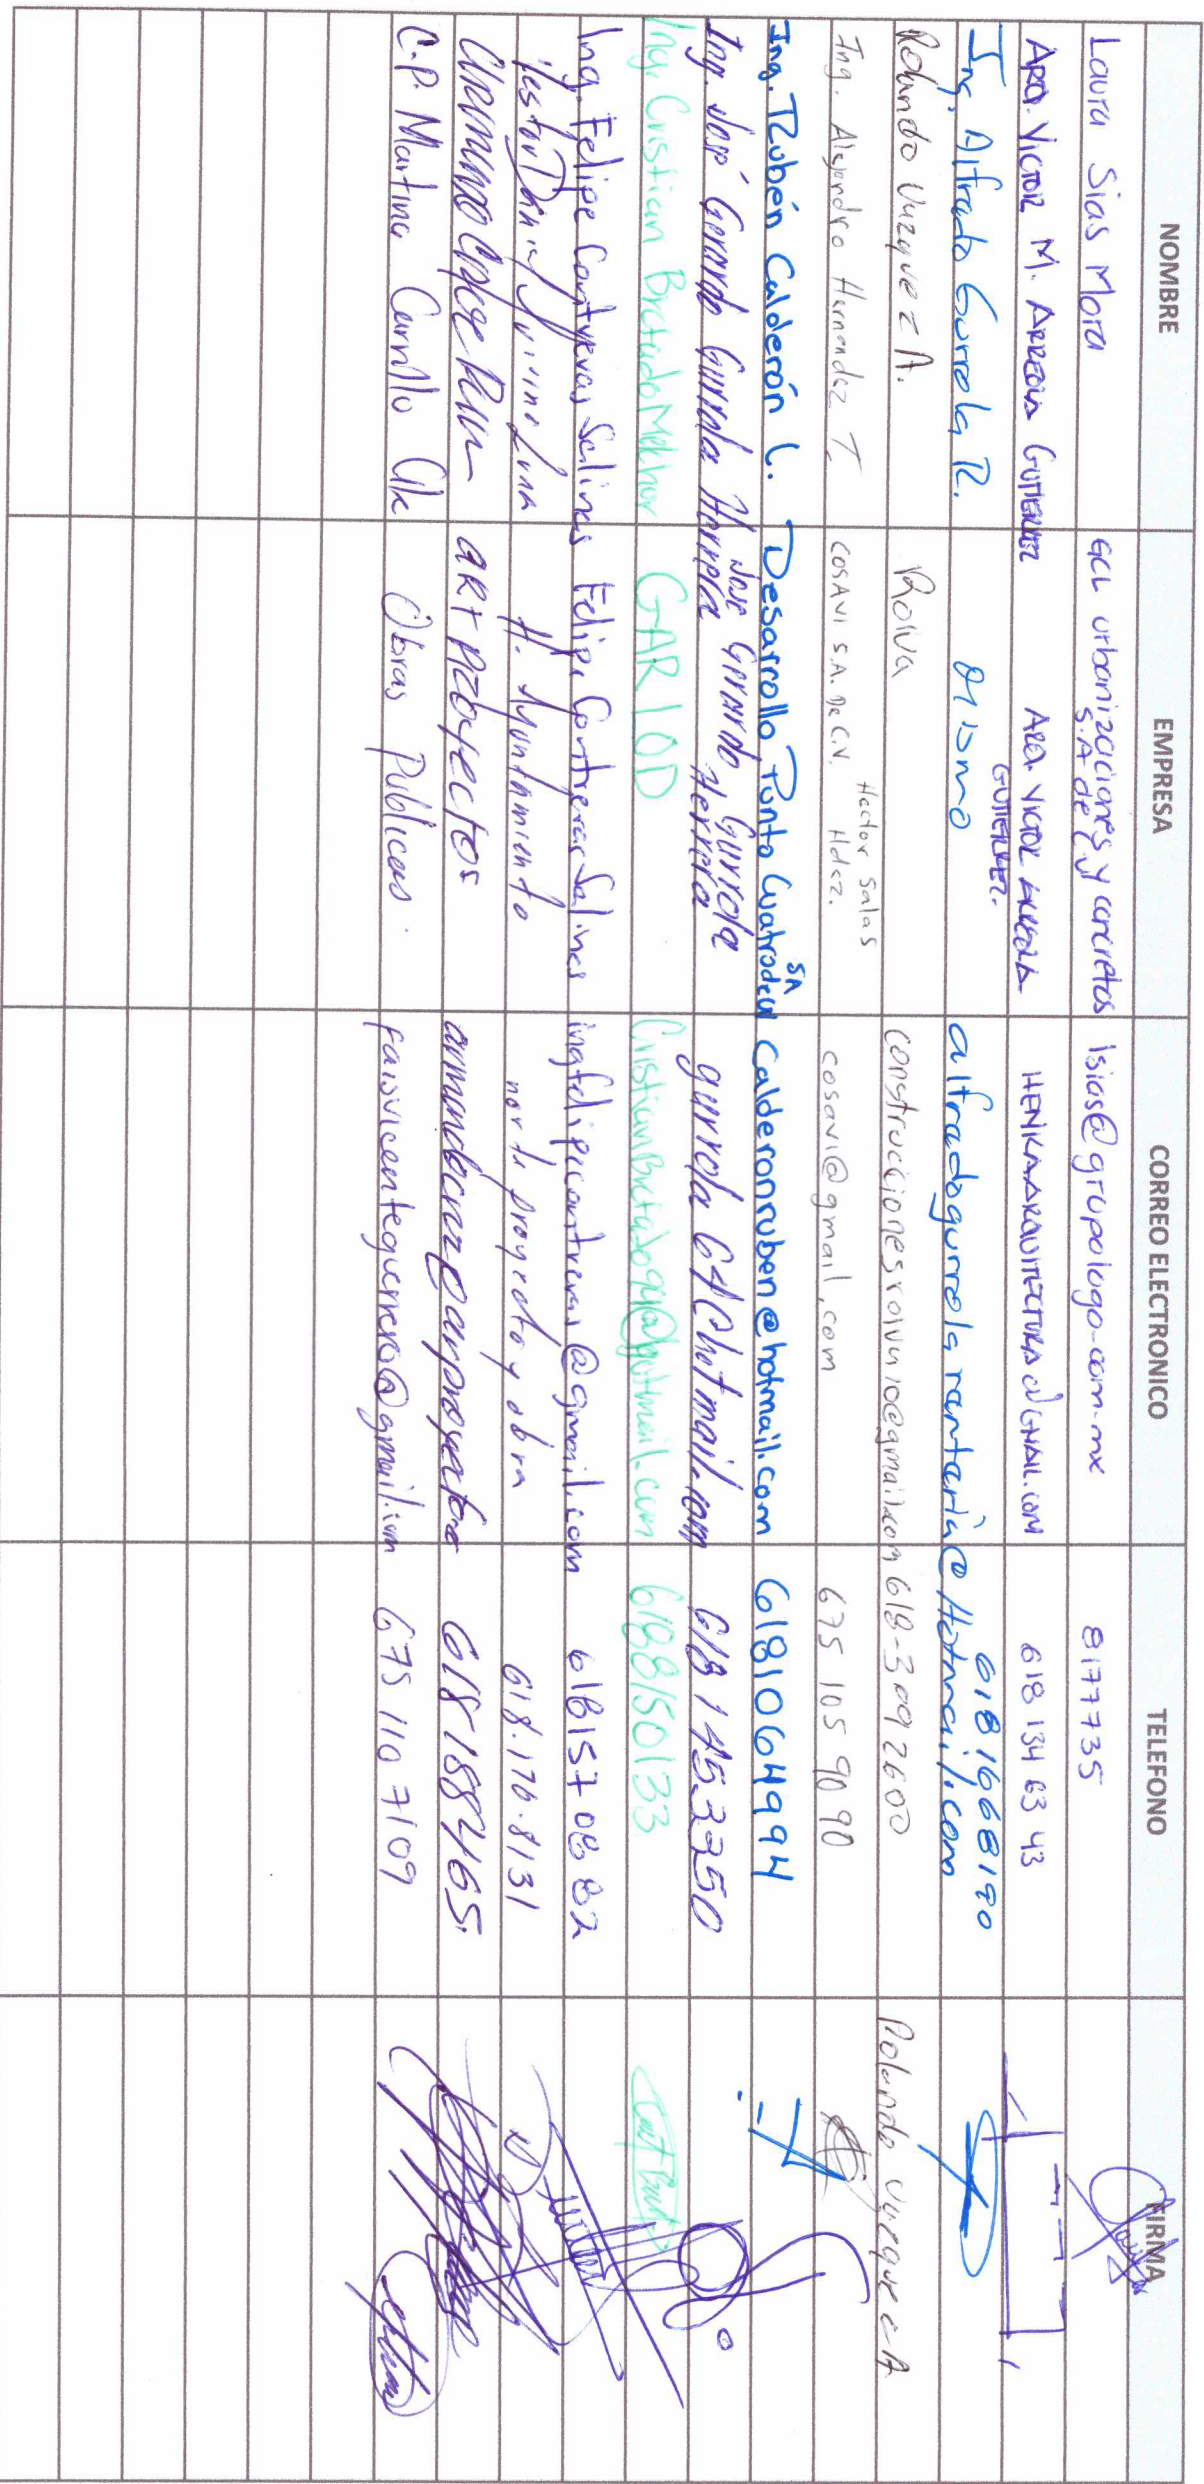 NOMBRE EMPRESA CORREO ELECTRONICO TELEFONO FIRMA
Laura Sias Mora GCL urbanizaciones y concretos S.A de C.V lsias@grupolugo.com.mx 8177735
ARQ. VICTOR M. ARREOLA GUTIERREZ ARQ. VICTOR ARREOLA GUTIERREZ. HENKAARQUITECTURA@GMAIL.COM 618 134 63 43
Ing. Alfredo Gurrola R. alfredogurrola rentería@Hotmail.com 618 1668190
Rolando Vazquez A. Roiva construccionesroiva10@gmail.com 618-309 2600 Rolando Vazquez A
Ing. Alejandro Hernandez T. COSAVI S.A. De C.V. Hector Salas Hdez. cosavi@gmail.com 675 105 90 90
Ing. Rubén Calderón L. Desarrollo Punto Cuatro SA de CV Calderonruben@hotmail.com 6181064994
Ing. José Gerardo Gurrola Herrera Jose Gerardo Gurrola Herrera gurrola 64@hotmail.com 618 1453350
Ing. Cristian Bretado Melchor GARIOD CristianBretado94@hotmail.com 6188150133
Ing. Felipe Contreras Salinas Felipe Contreras Salinas ingfelipecontreras@gmail.com 6181570882
Daniel Luna H. Ayuntamiento norte proyecto y obra 618.176.8131
ART PROYECTOS 618 1884465
C.P. Martina Carrillo Obras Publicas. 675 110 7109